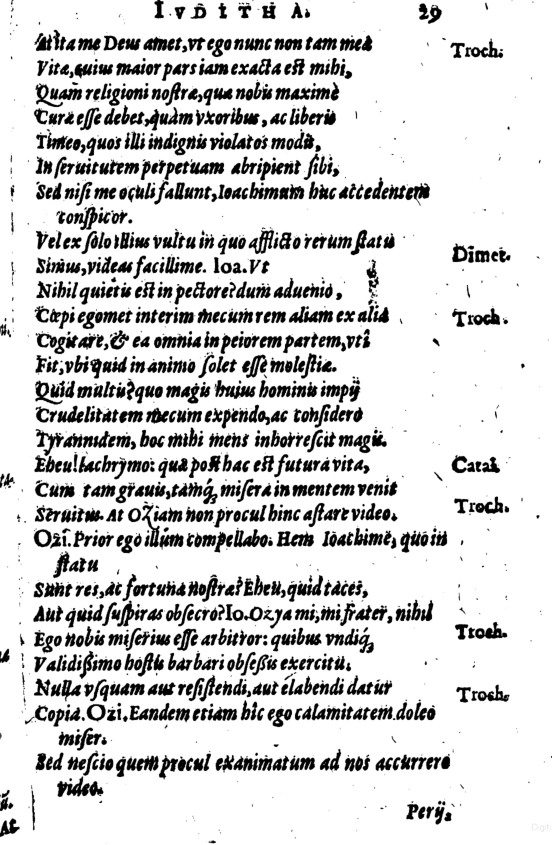 IVDITHA. 29
At ita me Deus amet, vt ego nunc non tam meæ Troch.
Vitæ, cuius maior pars iam exacta est mihi,
Quàm religioni nostræ, quæ nobis maximè
Curæ esse debet, quàm vxoribus, ac liberis
Timeo, quos illi indignis violatos modis,
In seruitutem perpetuam abripient sibi,
Sed nisi me oculi fallunt, Ioachimum huc accedentem
conspicor.
Vel ex solo illius vultu in quo afflicto rerum statu Dimet.
Simus, videas facillime. Ioa. Vt
Nihil quietis est in pectore? dum aduenio,
Cœpi egomet interim mecum rem aliam ex aliâ Troch.
Cogitare, & ea omnia in peiorem partem, vti
Fit, vbi quid in animo solet esse molestiæ.
Quid multis? quo magis huius hominis impij
Crudelitatem mecum expendo, ac considero
Tyrannidem, hoc mihi mens inhorrescit magis.
Eheu! lachrymo: quæ post hac est futura vita, Catal.
Cum tam grauis, tamq́; misera in mentem venit
Seruitus. At Oziam non procul hinc astare video. Troch.
Ozi. Prior ego illum compellabo. Hem Ioachime, quo in
statu
Sunt res, ac fortuna nostra? Eheu, quid taces,
Aut quid suspiras obsecro? Io. Ozya mi, mi frater, nihil
Ego nobis miserius esse arbitror: quibus vndiq́; Troch.
Validißimo hostis barbari obseßis exercitu.
Nulla vsquam aut resistendi, aut elabendi datur Troch.
Copia. Ozi. Eandem etiam hîc ego calamitatem doleo
miser.
Sed nescio quem procul exanimatum ad nos accurrere
video.
Perij.